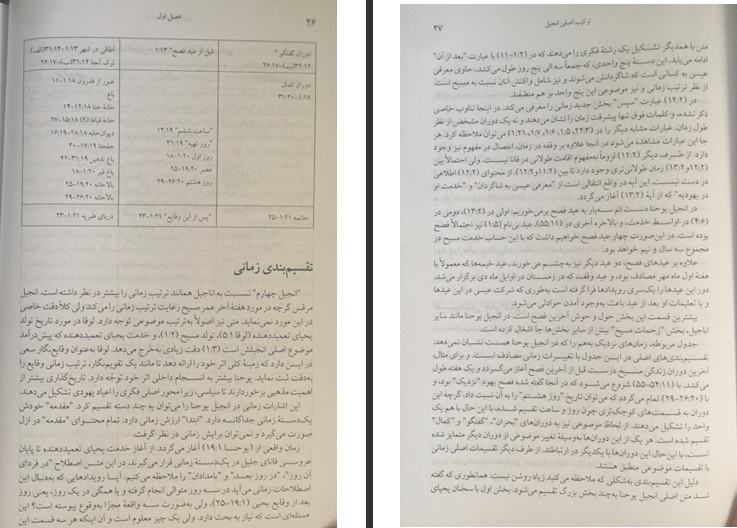 ۲۶
فصل اول
دوران گفتگو
قبل از عید فصح" ۱:۱۳
اطاقی در شهر ۱:۱۳-۳۱:۱۴(الف)
۳۶:۱۲(ب)-۲۶:۱۷
ترک آنجا ۳۱:۱۴(ب)-۲۶:۱۷
دوران کمال
عبور از قدرون ۱:۱۸-۱۱
۱:۱۸-۳۱:۲۰
باغ
خانهٔ حنا ۱۲:۱۸-۱۴
خانهٔ قیافا (؟) ۱۵:۱۸-۲۷
"ساعت ششم" ۱۴:۱۹
دیوان‌خانه ۲۸:۱۸-۱۶:۱۹
"روز تهیه" ۳۱:۱۹
جلجتا ۱۷:۱۹-۳۰
روز اول ۱:۲۰-۱۸
باغ تدفین ۳۱:۱۹-۴۲
عصر ۱۹:۲۰-۲۵
باغ قبر ۱:۲۰-۱۸
روز هشتم ۲۶:۲۰-۲۹
بالاخانه ۱۹:۲۰-۲۵
بالاخانه ۲۶:۲۰-۲۹
خاتمه ۱:۲۱-۲۵
"پس از این وقایع" ۱:۲۱-۲۳
دریای طبریه ۱:۲۱-۲۳
تقسیم‌بندی زمانی
"انجیل چهارم" نسبت به اناجیل همانند ترتیب زمانی را بیشتر در نظر داشته است. انجیل
مرقس گرچه در مورد هفتهٔ آخر عمر مسیح رعایت ترتیب زمانی را می‌کند ولی کلاً دقت خاصی
در این مورد نمی‌نماید. متی نیز اصولاً به‌ترتیب موضوعی توجه دارد. لوقا در مورد تاریخ تولد
یحیای تعمیددهنده (لوقا ۵:۱)، تولد مسیح (۱:۲)، و خدمت یحیای تعمیددهنده که پیش‌درآمد
موضوع اصلی انجیلش است (۱:۳) دقت زیادی به‌خرج می‌دهد. لوقا به‌عنوان وقایع‌نگار سعی
در این دارد که زمینهٔ کلی اثر خود را ارائه دهد تا مانند یک تقویم‌نگار، ترتیب زمانی وقایع را
به‌دقت ثبت نماید. یوحنا بیشتر به انسجام داخلی اثر خود توجه دارد. تاریخ‌گذاری بیشتر از
اهمیت مذهبی برخوردارند تا سیاسی، زیرا محور اصلی فکری را اعیاد یهودی تشکیل می‌دهند.
این اشارات زمانی در انجیل یوحنا را می‌توان به چند دسته تقسیم کرد. "مقدمه" خودش
یک‌دستهٔ زمانی جداگانه دارد. "ابتدا" ارزش زمانی دارد. تمام محتوای "مقدمه" در ازل
صورت می‌گیرد و نمی‌توان برایش زمانی در نظر گرفت.
زمان واقعی از (یوحنا ۱۹:۱) آغاز می‌گردد. از آغاز خدمت یحیای تعمیددهنده تا پایان
عروسی قانای جلیل در یک‌دستهٔ زمانی قرار می‌گیرند. در این متن اصطلاح "در فردای
آن روز"، "در روز بعد" و "بامدادان" را ملاحظه می‌کنیم. آیا رویدادهایی که به‌دنبال این
اصطلاحات زمانی می‌آید در سه روز متوالی انجام گرفته و یا همگی در یک روز، یعنی روز
بعد از وقایع یحیی (۱۹:۱-۲۵)، ولی به‌صورت سه واقعهٔ مجزا به‌وقوع پیوسته است؟ این
مسئله‌ای است که نیاز به بحث دارد. ولی یک چیز معلوم است و آن اینکه هر سه قسمت این
ترکیب اصلی انجیل
۲۷
متن با همدیگر تشکیل یک رشتهٔ فکری را می‌دهند که در (۱:۲-۱۱) با عبارت "بعد از آن"
ادامه می‌یابد. این دستهٔ پنج واحدی، که جمعاً سه الی پنج روز طول می‌کشد، حاوی معرفی
عیسی به کسانی است که شاگردش می‌شوند و نیز شامل واکنش آنان نسبت به مسیح است.
از نظر ترتیب زمانی و نیز موضوعی این پنج واحد بر هم منطبقند.
در (۱۲:۲) عبارت "سپس" بخش جدید زمانی را معرفی می‌کند. در اینجا تناوب خاصی
ذکر نشده، و کلمات فوق تنها پیشرفت زمان را نشان می‌دهند و نه یک دوران مشخص از نظر
طول زمان. عبارات مشابه دیگر را در (۲۲:۳، ۱:۵، ۱:۶، ۱:۷، ۱:۲۱) می‌توان ملاحظه کرد. هر
جا این عبارات مشاهده می‌شود در آنجا علاوه بر وقفه در زمان، انفصال در مفهوم نیز وجود
دارد. از طرف دیگر (۱۲:۲) لزوماً به‌مفهوم اقامت طولانی در قانا نیست. ولی احتمالاً بین
(۱۲:۲و۱۳:۲) زمان طولانی‌تری وجود دارد تا بین (۱۱:۲و۱۲:۲). از محتوای (۱۲:۲) اطلاعی
در دست نیست. این آیه در واقع انتقالی است از "معرفی عیسی به شاگردان" و "خدمت او
در یهودیه" که از آیهٔ (۱۳:۲) آغاز می‌گردد.
در انجیل یوحنا دست کم سه‌بار به عید فصح برمی‌خوریم: اولی در (۱۳:۲)، دومی در
(۴:۶) در اواسط خدمت، و بالاخره آخری در (۵۵:۱۱). عید بی‌نام (۱:۵) نیز احتمالاً فصح
بوده است. در این‌صورت چهار عید فصح خواهیم داشت که با این حساب خدمت مسیح در
مجموع سه سال و نیم خواهد بود.
علاوه بر عیدهای فصح، دو عید دیگر نیز به‌چشم می‌خورند، عید خیمه‌ها که معمولاً با
هفتهٔ اول ماه مهر مصادف بود، و عید وقف، که در زمستان در اوایل ماه دی برگزار می‌شد.
دور این عیدها را یک‌سری رویدادها فرا گرفته است به‌طوری که شرکت عیسی در این عیدها
و یا تعلیمات او بعد از عید باعث به‌وجود آمدن حوادثی می‌شود.
بیشترین قسمت این بخش حول و حوش آخرین فصح است. در انجیل یوحنا مانند سایر
اناجیل، بخش "زحمات مسیح" بیش از سایر بخش‌ها جا اشغال کرده است.
جدول مربوطه، زمان‌های نزدیک به‌هم را که در انجیل یوحنا هست نشان نمی‌دهد.
تقسیم‌بندی‌های اصلی در این جدول با تغییرات زمانی مصادف است. و برای مثال،
آخرین دوران زندگی مسیح درست قبل از آخرین فصح آغاز می‌گردد و یک هفته طول
می‌کشد. با (۵۴:۱۱-۵۵) شروع می‌شود که در آنجا گفته شده فصح یهود "نزدیک" بود، و
با (۲۶:۲۰-۲۹) تمام می‌گردد که می‌توان تاریخ "روز هشتم" را به آن نسبت داد. گرچه این
دوران به قسمت‌های کوچک‌تری چون روز و ساعت تقسیم شده، با این حال با هم یک
واحد را تشکیل می‌دهند. از لحاظ موضوعی نیز به دوران‌های "بحران"، "گفتگو" و "کمال"
تقسیم شده است. هر یک از این دوران‌ها به‌وسیلهٔ تغییر موضوعی از دوران دیگر متمایز شده
است، با این‌حال این دوران‌ها با یکدیگر در ارتباطند. از طرف دیگر تقسیمات اصلی زمانی
با تقسیمات موضوعی منطبق هستند.
دلیل این تقسیم‌بندی به‌شکلی که ملاحظه می‌کنید زیاد روشن نیست. همانطوری که گفته
شد متن اصلی انجیل یوحنا به‌چند بخش بزرگ تقسیم می‌شود. بخش اول با سخنان یحیای